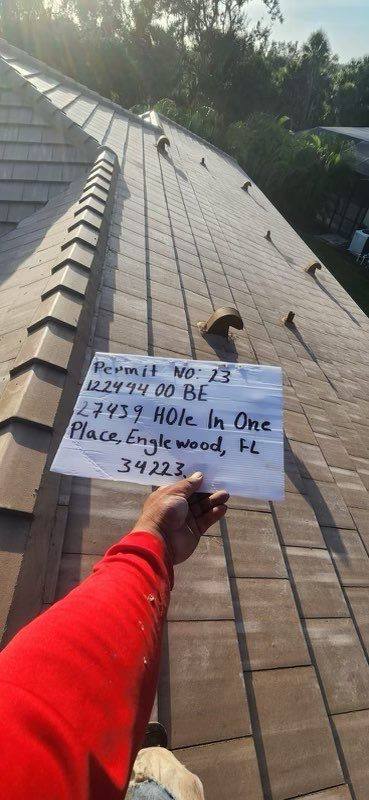 Permit NO: 23
122494 00 BE
27459 HOle In One
Place, Englewood, FL
34223